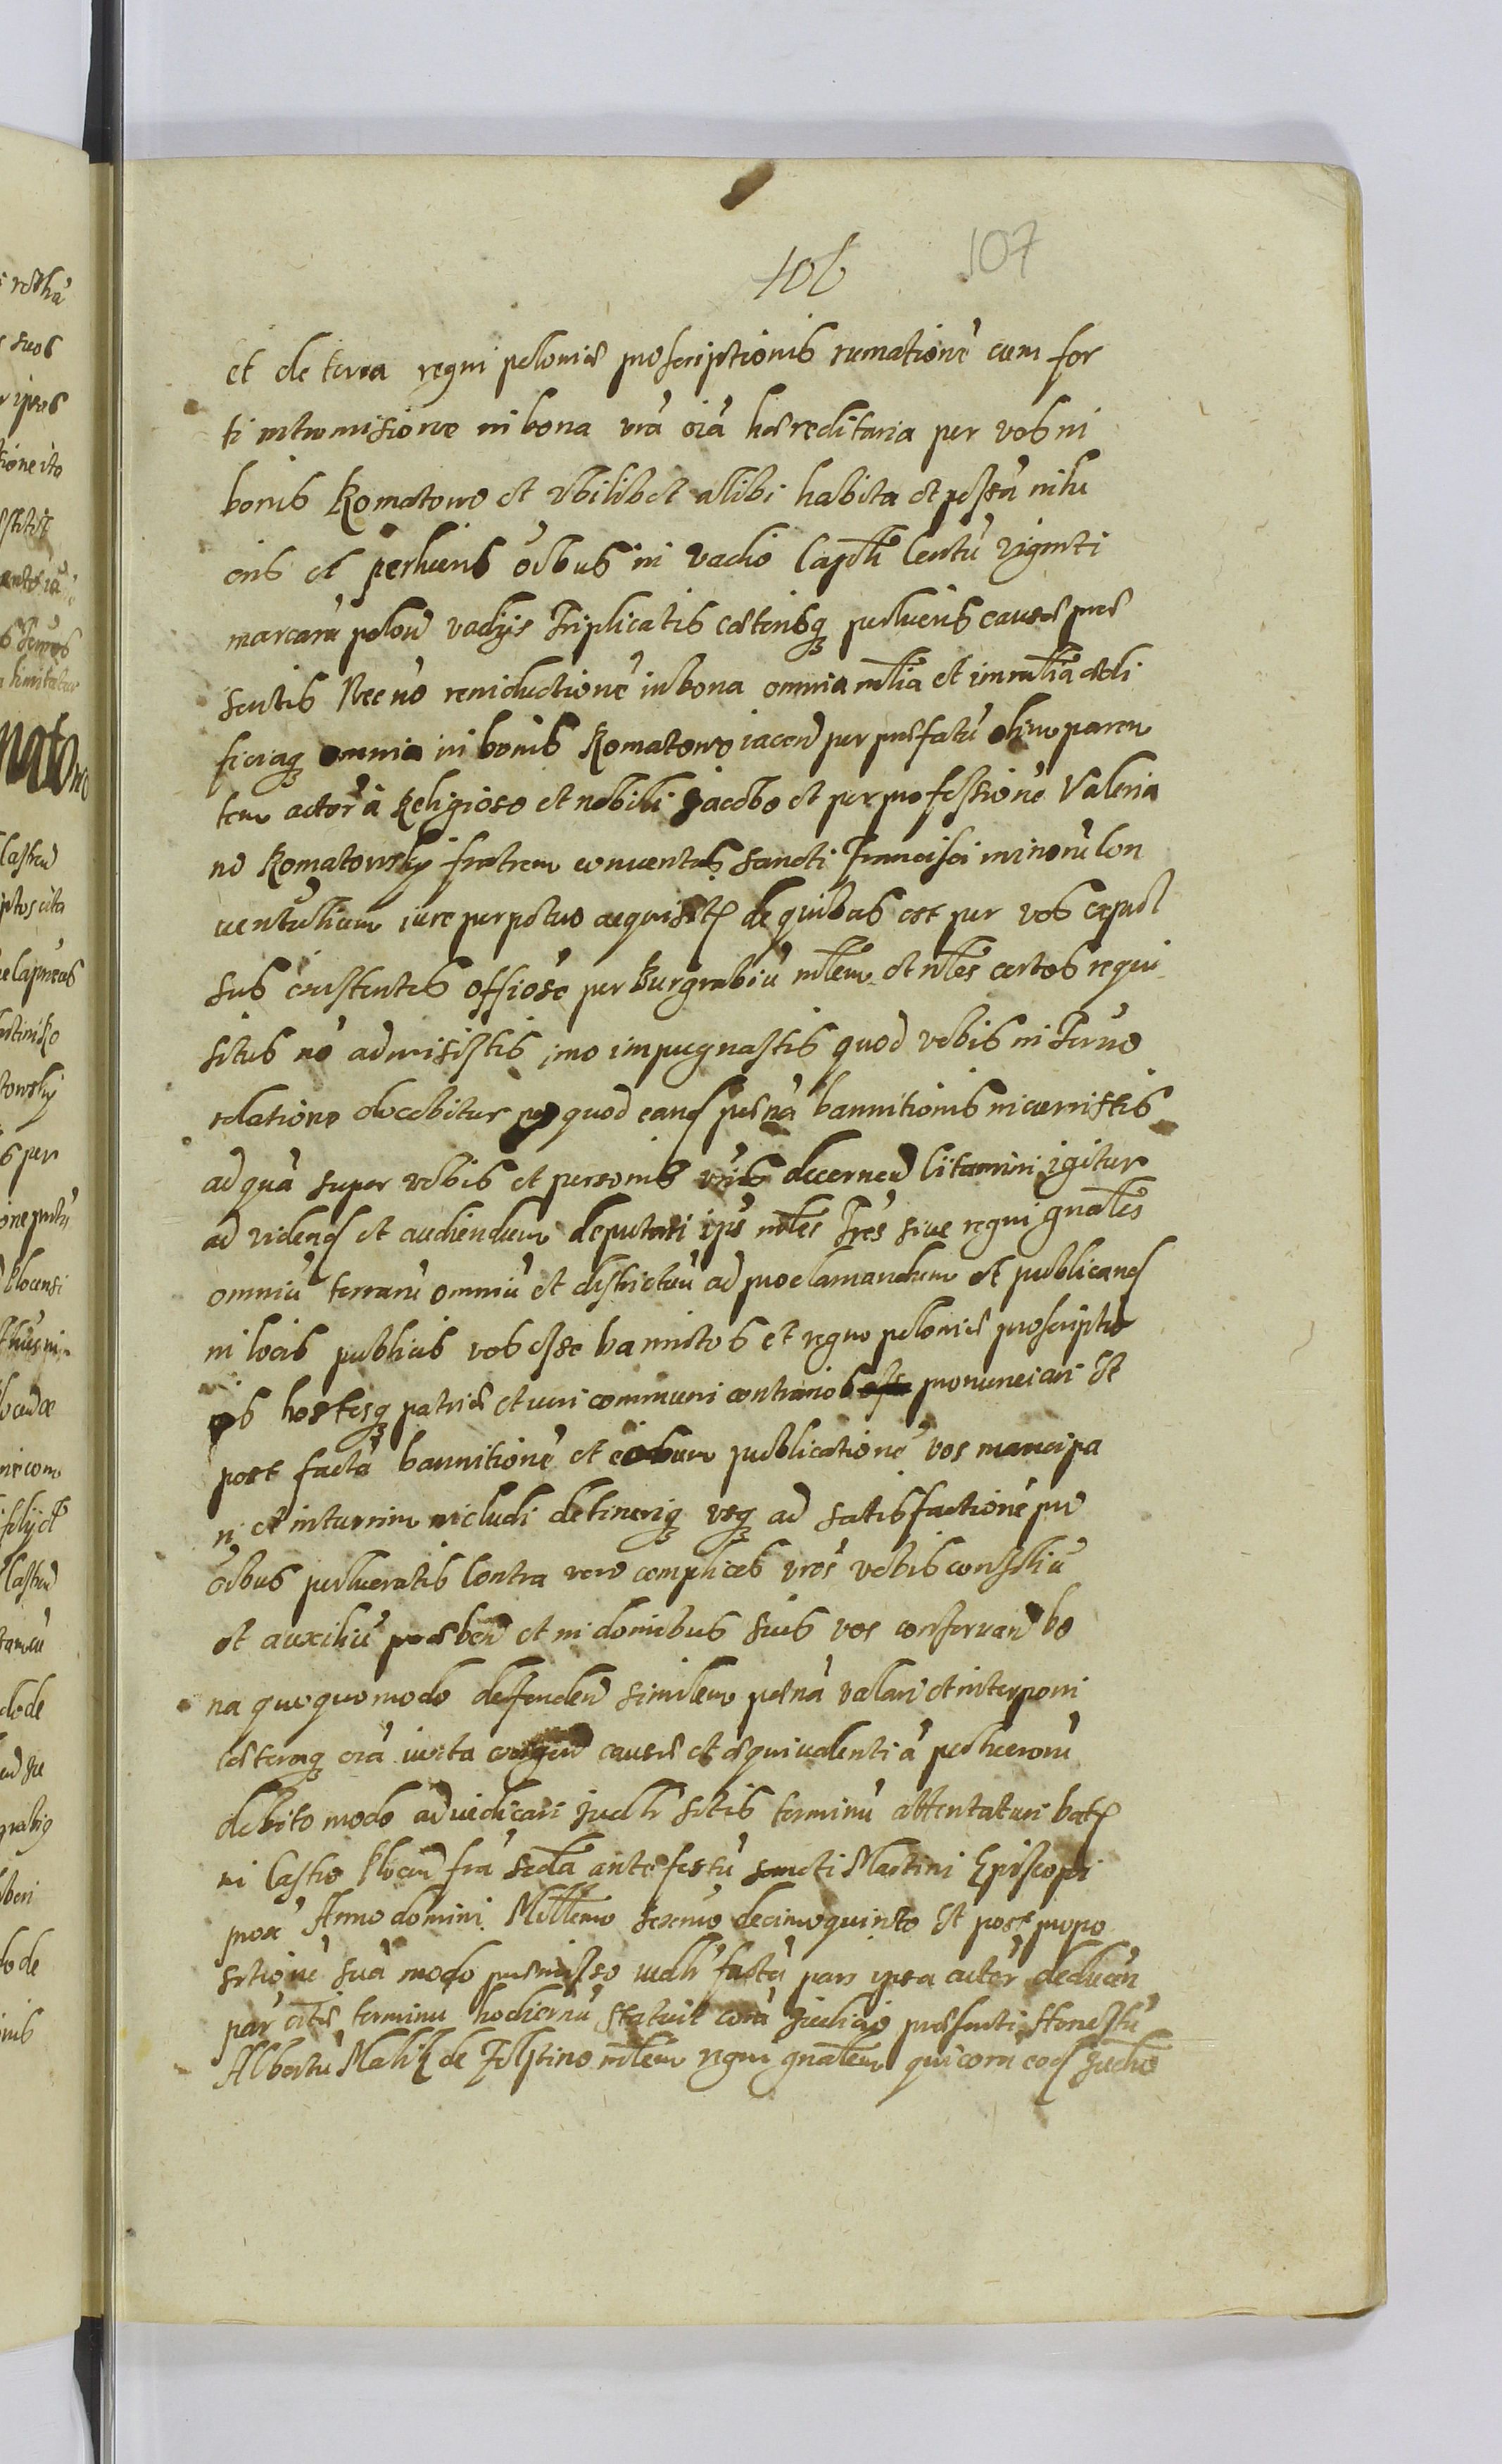 106 107
et de terra regni poloniæ proscriptionis rumatione cum for
ti intromisione in bona vrã oĩa hæreditaria per vos in
bonis Romatowo et vbilibet alibi habita et possa in lu
cris et perlucris oĩbus in vadio Capitli Centũ viginti
marcarũ polon vadijs Triplicatis cæterisq perlucris causæ præ
sentis Nec nõ reinductionẽ in bona omnia mblia et immblia ædi
ficiaq omnia in bonis Romatowo iacen per præfatũ olim paren
tem actorã Religioso et nobili Jacobo et per professionẽ Valeria
no Romatowsky fratrem conuentus Sancti Francisci minorũ Con
uentualium iure perpetuo acquisit de quibus est per vos expul
sus existentes offiose per Burgrabiũ mlem et nbles certos requi
situs nõ admisistis imo impugnastis quod vobis in Termo
relatione docebitur quod eand pænã bannitionis incurristis
ad quã super vobis et personis vris decernen Citamini igitur
ad vidend et audiendum deputari ips mles Tres siue regni gnales
omniũ terrarũ omniũ et districtuũ ad proclamandum et publicand
in locis publicis vos esse bannitos et regno poloniæ proscriptis
os hostesq patriæ et iuri communi contrarios pronunciari Et
post factã bannitionẽ et publicationẽ vos mancipa
ri et in turrim includi detineriq vsq ad satisfactionẽ pro
oĩbus perlucratis Contra vero complices vros vobis consiliũ
et auxiliũ præben et in domibus suis vos conseruan bo
na quoquomodo defenden similem pænã valari et interponi
Cæteraq oĩa iuxta exigen causæ et æquiualentiã perlucrorũ
debito modo adiudicari Judlr sitis terminũ attentaturi
in Castro Plocen fra scda ante festũ sancti Martini Episcopi
prox Anno domini Millmo sexcmo decimoquinto Et post propo
sitionẽ suã modo præmisso iudlr factã pars ipsa actor deducen
par citæ terminũ hodiernũ statuit corã Judicio præsenti Honestũ
Albertũ Malik de mlem regni gnalem qui corã eod Judicio